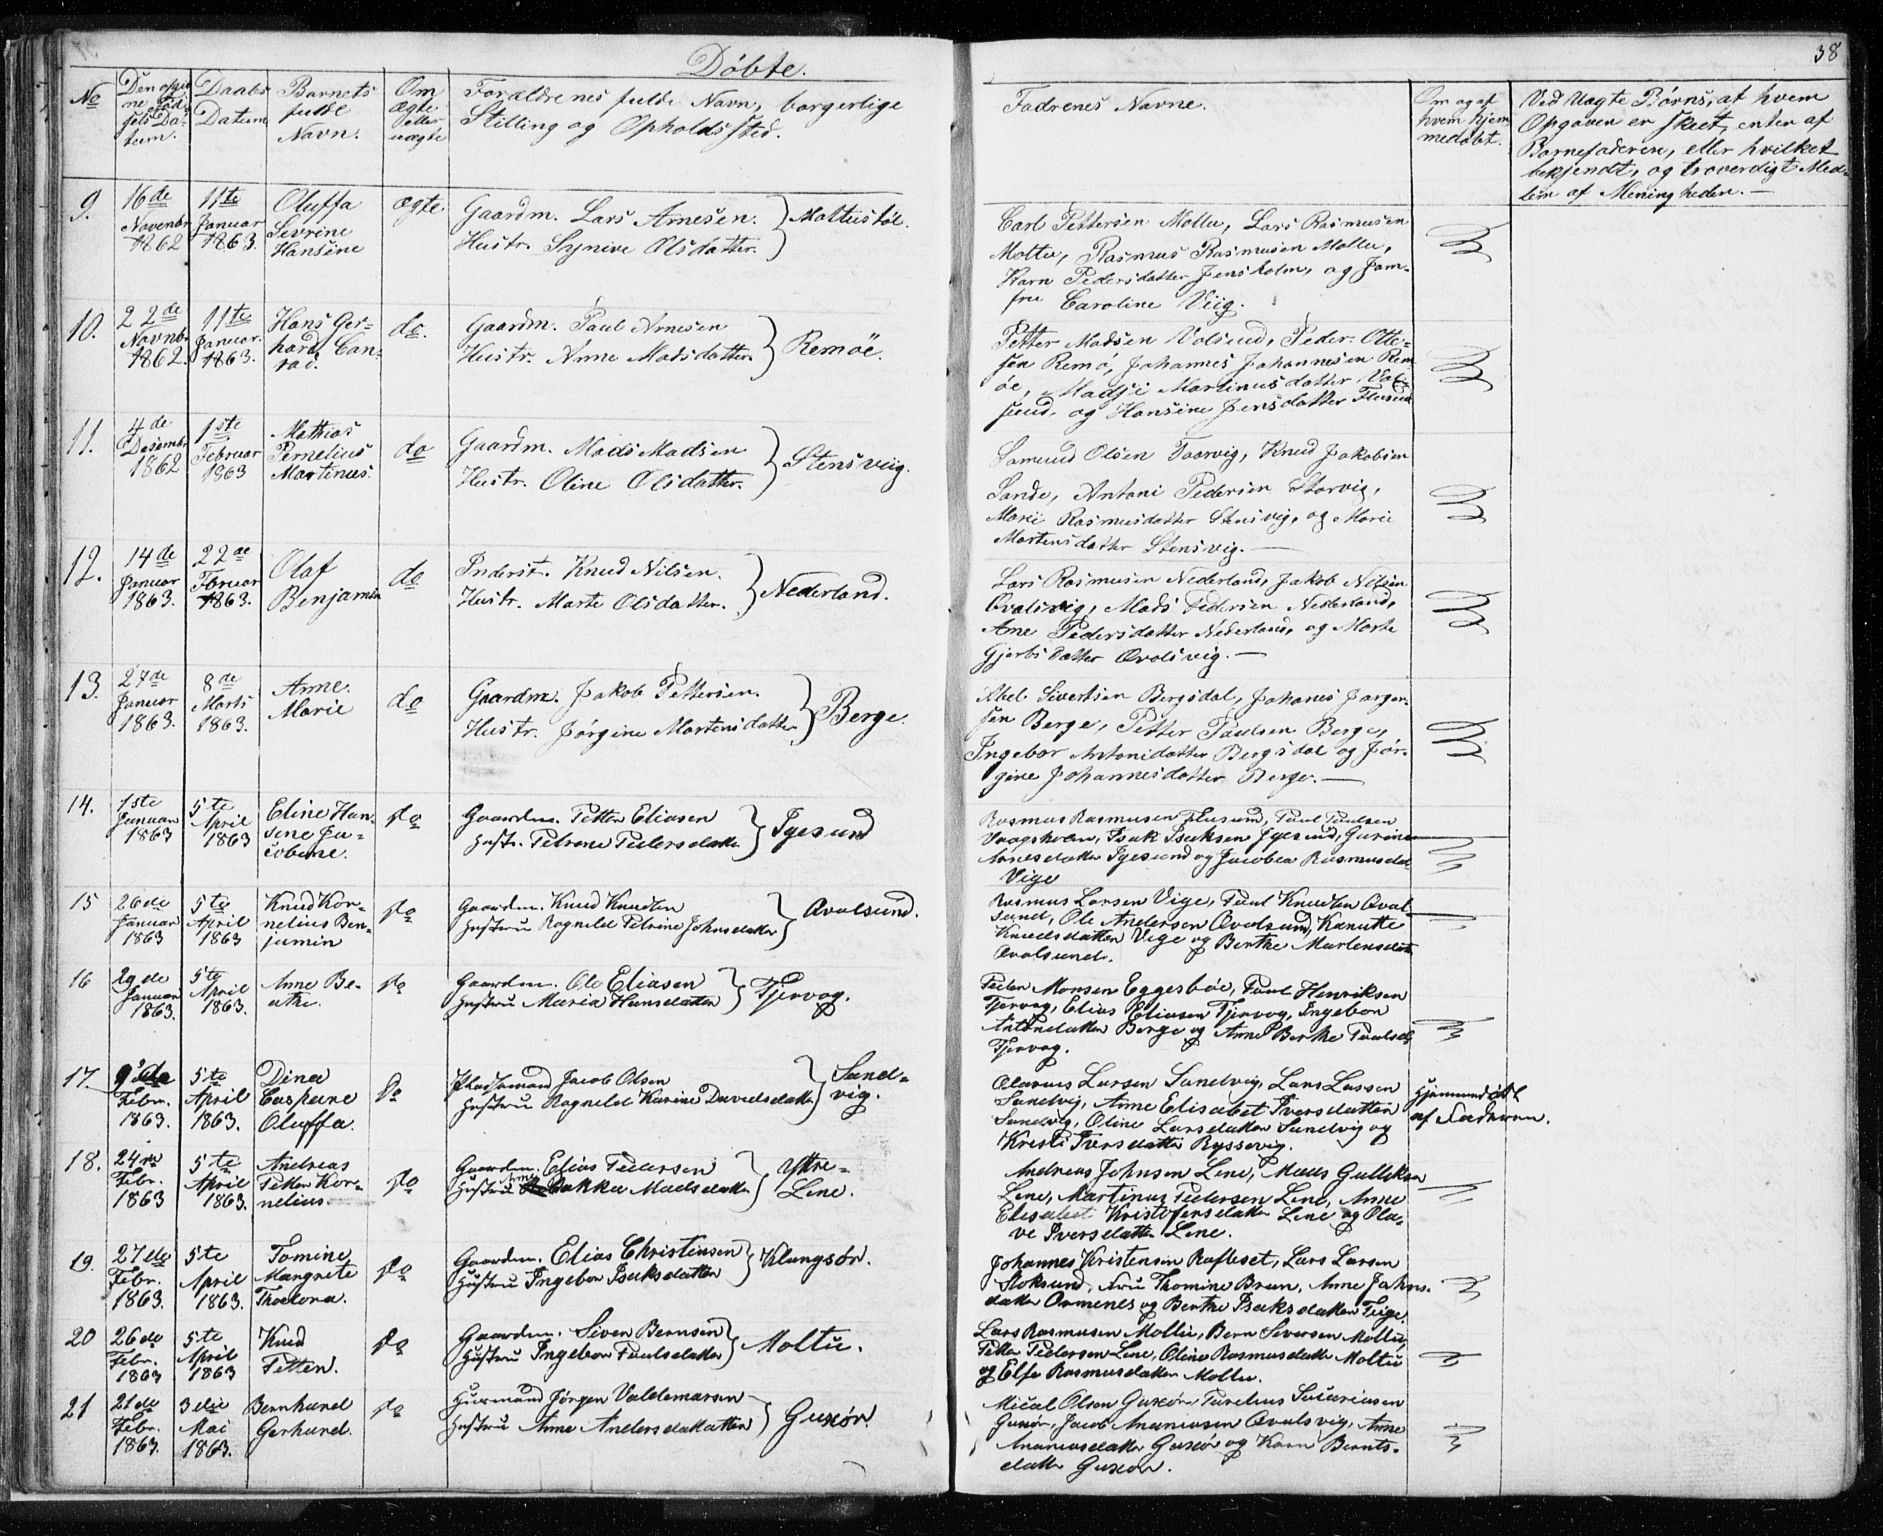 38
Döbte.
No
Den opgivne Fødsels Datum.
Daabs Datum
Barnets fulde Navn.
Om ægte eller uægte
Forældrenes fulde Navn, borgerlige Stilling og Opholdssted.
Fadrenes Navne.
Om og af hvem hjemmedøbt.
Ved Uægte Børns, af hvem Opgaven er skeet, enten af Barnefaderen, eller hvilket bekjendt, og troverdigt Medlem af Meningheden. —
9. 16de Novenbr 1862 11te Januar 1863. Oluffa Sevrine Hansine ægte.
Gaardm. Lars Arnesen.
Hustr. Synive Olsdatter. } Moltustøl.
Carl Pettersen Moltu, Lars Rasmusen
Moltu, Rasmus Rasmusen Moltu,
Karn Pedersdatter Jensholm, og Jom-
fru Caroline Viig.
10. 22de Novnbr 1862. 11te Januar. 1863. Hans Ger-hard Con-rad. do.
Gaardm. Paul Arnesen
Hustr. Anne Madsdatter. } Remøe.
Petter Madsen Volsund, Peder Otte-
sen Remö, Johannes Johannesen Rem
øe, Madsi Martinusdatter Vol-
sund, og Hansine Jensdatter Flusund
11. 4de Desembr 1862 1ste Februar 1863 Mathias Pernelius Martinus. do
Gaardm. Mads Madsen
Hustr. Oline Olsdatter. } Stensviig.
Samund Olsen Taarvig, Knud Jakobsen
Sande, Antoni Pedersen Storvig,
Marie Rasmusdatter Stensvig, og Marie
Martensdatter Stensvig. —
12. 14de Januar 1863. 22de Februar 1863. Olaf Benjamin do
Inderst. Knud Nilsen.
Hustr. Marte Olsdatter. } Nederland.
Lars Rasmusen Nederland, Jakob Nilsen
Qvalsvig, Mads Pedersen Nederland,
Ane Pedersdatter Nederland, og Marte
Gjertsdatter Qvalsvig. —
13. 27de Januar 1863. 8de Marts 1863. Anne Marie do
Gaardm. Jakob Pettersen.
Hustr. Jørgine Martensdatter } Berge.
Abel Sivertsen Bergsdal, Johanes Jørgen-
sen Berge, Petter Paulsen Berge,
Ingebor Antonidatter Bergsdal og Jør-
gine Johannesdatter Berge. —
14. 1ste Januar 1863 5te April 1863 Eline Han-sene Ja-cobine. do
Gaardm. Petter Eliasen
Hustr. Petrone Pedersdatter } Igesund
Rasmus Rasmusen Flusund, Paul Paulsen
Vaagsholm, Isak Isaksen Igesund, Gurine
Arnesdatter Igesund og Jacobea Rasmusdat
Vige
15 26de Januar 1863 5te April 1863 Knud Kor-nelius Ben-jamin do
Gaardm. Knud Knudsen
Hustru Ragnild Petrine Johnsdatter } Qvalsund.
Rasmus Larsen Vige, Paul Knudsen Qval-
sund, Ole Andersen Qvalsund, Kanutte
Knudsdatter Vige og Berthe Martensdat
Qvalsund.
16 29de Januar 1863. 5te April 1863. Anne Be-athe. do
Gaardm. Ole Eliasen
Hustru Maria Hansdatter } Tjervog.
Peder Monsen Eggesböe, Paul Henriksen
Tjervog, Elias Eliasen Tjervog, Ingebor
Antondatter Berge og Anne Berthe Paulsd
Tjervog.
17. 9de Febr. 1863. 5te April 1863. Dina Caspara Oluffa. do
Pladsmand Jacob Olsen
Hustru Ragnild Karine Davidsdatter } Sand-vig.
Olavus Larsen Sandvig, Lars Larsen
Sandvig, Anne Elisabet Iversdatter
Sandvig, Oline Larsdatter Sandvig og
Kristi Iversdatter Ryssevig.
Hjemmedöbt af Fadrenen.
18. 24de Febr. 1863 5te April 1863. Andreas Petter Kor-nelius do
Gaardm. Elias Pedersen
Hustru Anne Bakka Madsdatter } Yttre-Line.
Andreas Johnsen Line, Mads Gulliksen
Line, Martinus Pedersen Line, Anne
Elisabet Kristofersdatter Line og Ola-
ve Iversdatter Line.
19. 27de Febr. 1863. 5te April 1863. Tomine Margrete Theodora. do
Gaardm. Elias Christensen
Hustru Ingebor Isaksdatter } Klungsör.
Johannes Kristensen Rafteset, Lars Larsen
Stoksund, Fru Thomine Brun, Anne Johns-
datter Ormenes og Berthe Isaksdatter Teige.
20 26de Febr. 1863 5te April 1863 Knud Petter. do
Gaardm. Siver Bernsen
Hustru Ingebor Paulsdatter } Moltu.
Lars Rasmusen Moltu, Bern Seversen Moltu,
Petter Pedersen Line, Oline Rasmusdatter Moltu
og Else Rasmusdatter Moltu.
21 21de Febr. 1863. 3die Mai 1863. Bernhard Gerhard. do
Husmand Jørgen Valdemarsen
Hustru Anne Andersdatter } Gursør.
Mical Olsen Gursør, Parelius Sacariasen
Gursør, Jacob Ananiasen Qvalsvig, Anne
Ananiasdatter Gursør og Karn Bernts-
datter Gursør.